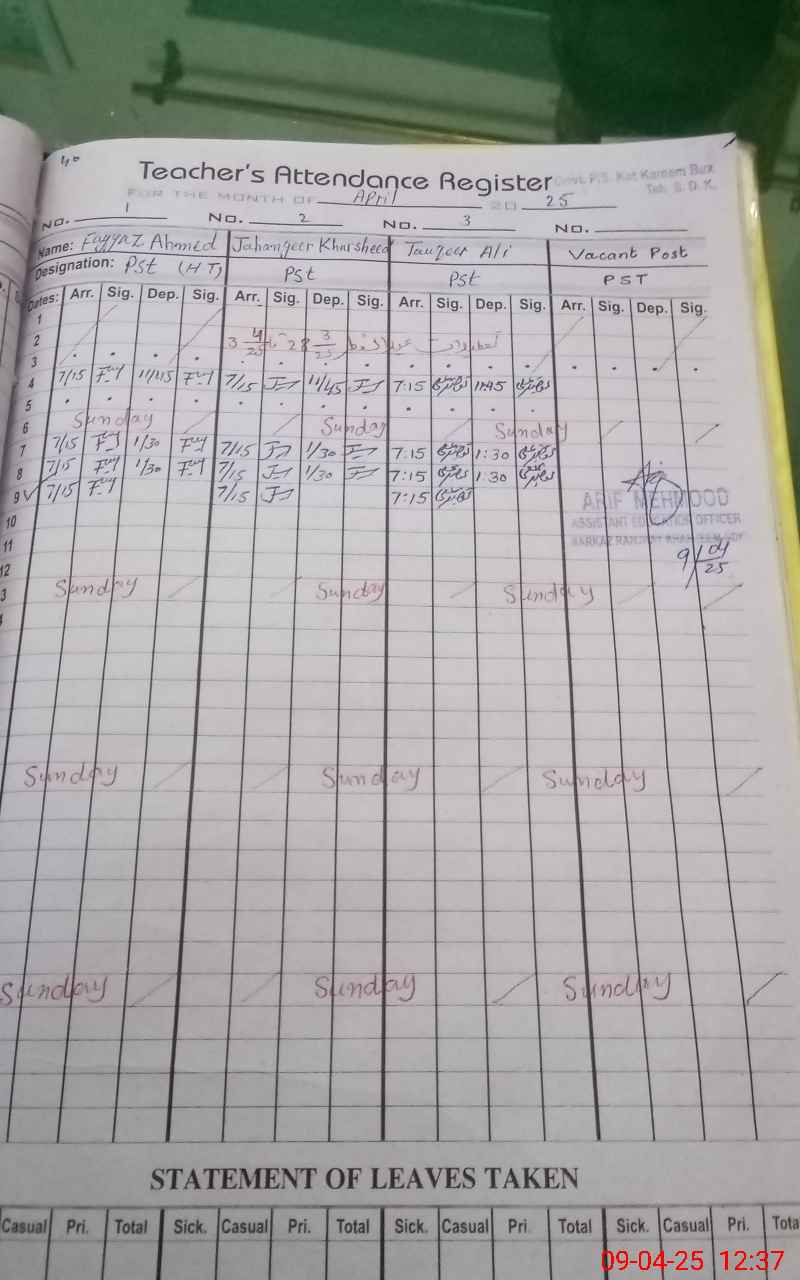 Teacher's Attendance Register
Govt. P.S. Kot Kareem Bux
Teh. S. D. K.
FOR THE MONTH OF April 20 25
No. 1 No. 2 No. 3 No.
Name: Fayyaz Ahmed Jahangeer Khursheed Tauqeer Ali Vacant Post
Designation: PSt (HT) PSt PSt PST
Dates: Arr. Sig. Dep. Sig. Arr. Sig. Dep. Sig. Arr. Sig. Dep. Sig. Arr. Sig. Dep. Sig.
1
2 3 4/25 تا 28 3/25 عید الفطر تعطیلات
3
4 7/15 11/45 7/15 11/45 7:15 11:45
5
6 Sunday Sunday Sunday
7 7/15 1/30 7/15 1/30 7:15 1:30
8 7/15 1/30 7/15 1/30 7:15 1:30
9 7/15 7/15 7:15
ARIF MEHMOOD
10
ASSISTANT EDUCATION OFFICER
11
9/04/25
12
3 Sunday Sunday Sunday
Sunday Sunday Sunday
Sunday Sunday Sunday
STATEMENT OF LEAVES TAKEN
Casual Pri. Total Sick. Casual Pri. Total Sick. Casual Pri. Total Sick. Casual Pri. Tota
09-04-25 12:37